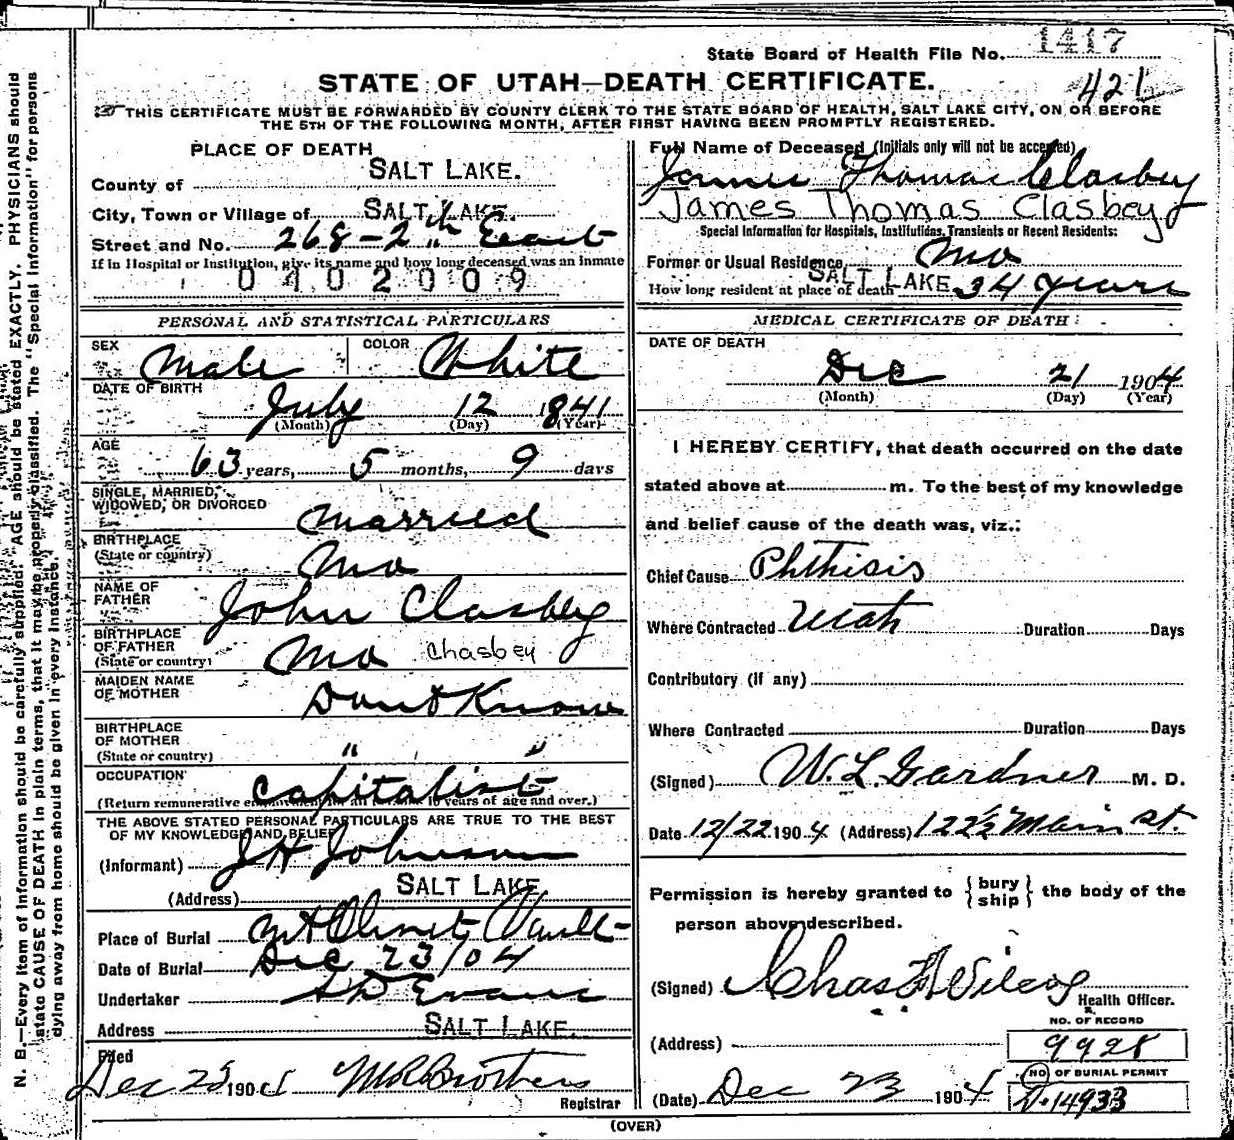 State Board of Health File No. 1417
421
STATE OF UTAH—DEATH CERTIFICATE.
THIS CERTIFICATE MUST BE FORWARDED BY COUNTY CLERK TO THE STATE BOARD OF HEALTH, SALT LAKE CITY, ON OR BEFORE
THE 5TH OF THE FOLLOWING MONTH, AFTER FIRST HAVING BEEN PROMPTLY REGISTERED.
N. B.—Every item of information should be carefully supplied. AGE should be stated EXACTLY. PHYSICIANS should
state CAUSE OF DEATH in plain terms, that it may be properly classified. The "Special Information" for persons
dying away from home should be given in every instance.
PLACE OF DEATH
County of SALT LAKE.
City, Town or Village of SALT LAKE.
Street and No. 268-2nd East
If in Hospital or Institution, give its name and how long deceased was an inmate
0402009
Full Name of Deceased (Initials only will not be accepted)
James Thomas Clasbey
James Thomas Clasbey
Special Information for Hospitals, Institutions, Transients or Recent Residents:
Former or Usual Residence Mo
How long resident at place of death SALT LAKE 34 years
PERSONAL AND STATISTICAL PARTICULARS
SEX Male COLOR White
DATE OF BIRTH
July 12 1841
(Month) (Day) (Year)
AGE
63 years, 5 months, 9 days
SINGLE, MARRIED,
WIDOWED, OR DIVORCED Married
BIRTHPLACE
(State or country) Mo
NAME OF
FATHER John Clasbey
BIRTHPLACE
OF FATHER
(State or country) Mo Chasbey
MAIDEN NAME
OF MOTHER Dont Know
BIRTHPLACE
OF MOTHER
(State or country) " "
OCCUPATION Capitalist
(Return remunerative employment for all persons 10 years of age and over.)
THE ABOVE STATED PERSONAL PARTICULARS ARE TRUE TO THE BEST
OF MY KNOWLEDGE AND BELIEF
(Informant) J H Johnson
(Address) SALT LAKE
Place of Burial Mt Olivet Vault
Date of Burial Dec 23/04
Undertaker S D Evans
Address SALT LAKE.
Filed
Dec 23 190 M R Brothers
Registrar
MEDICAL CERTIFICATE OF DEATH
DATE OF DEATH
Dec 21 1904
(Month) (Day) (Year)
I HEREBY CERTIFY, that death occurred on the date
stated above at m. To the best of my knowledge
and belief cause of the death was, viz.:
Chief Cause Phthisis
Where Contracted Utah Duration Days
Contributory (if any)
Where Contracted Duration Days
(Signed) W. L. Gardner M. D.
Date 12/22 1904 (Address) 122½ Main st.
Permission is hereby granted to {bury ship} the body of the
person above described.
(Signed) Chas F Wilcox
Health Officer.
(Address)
NO. OF RECORD
9928
NO. OF BURIAL PERMIT
D.14933
(Date) Dec 23 1904
(OVER)